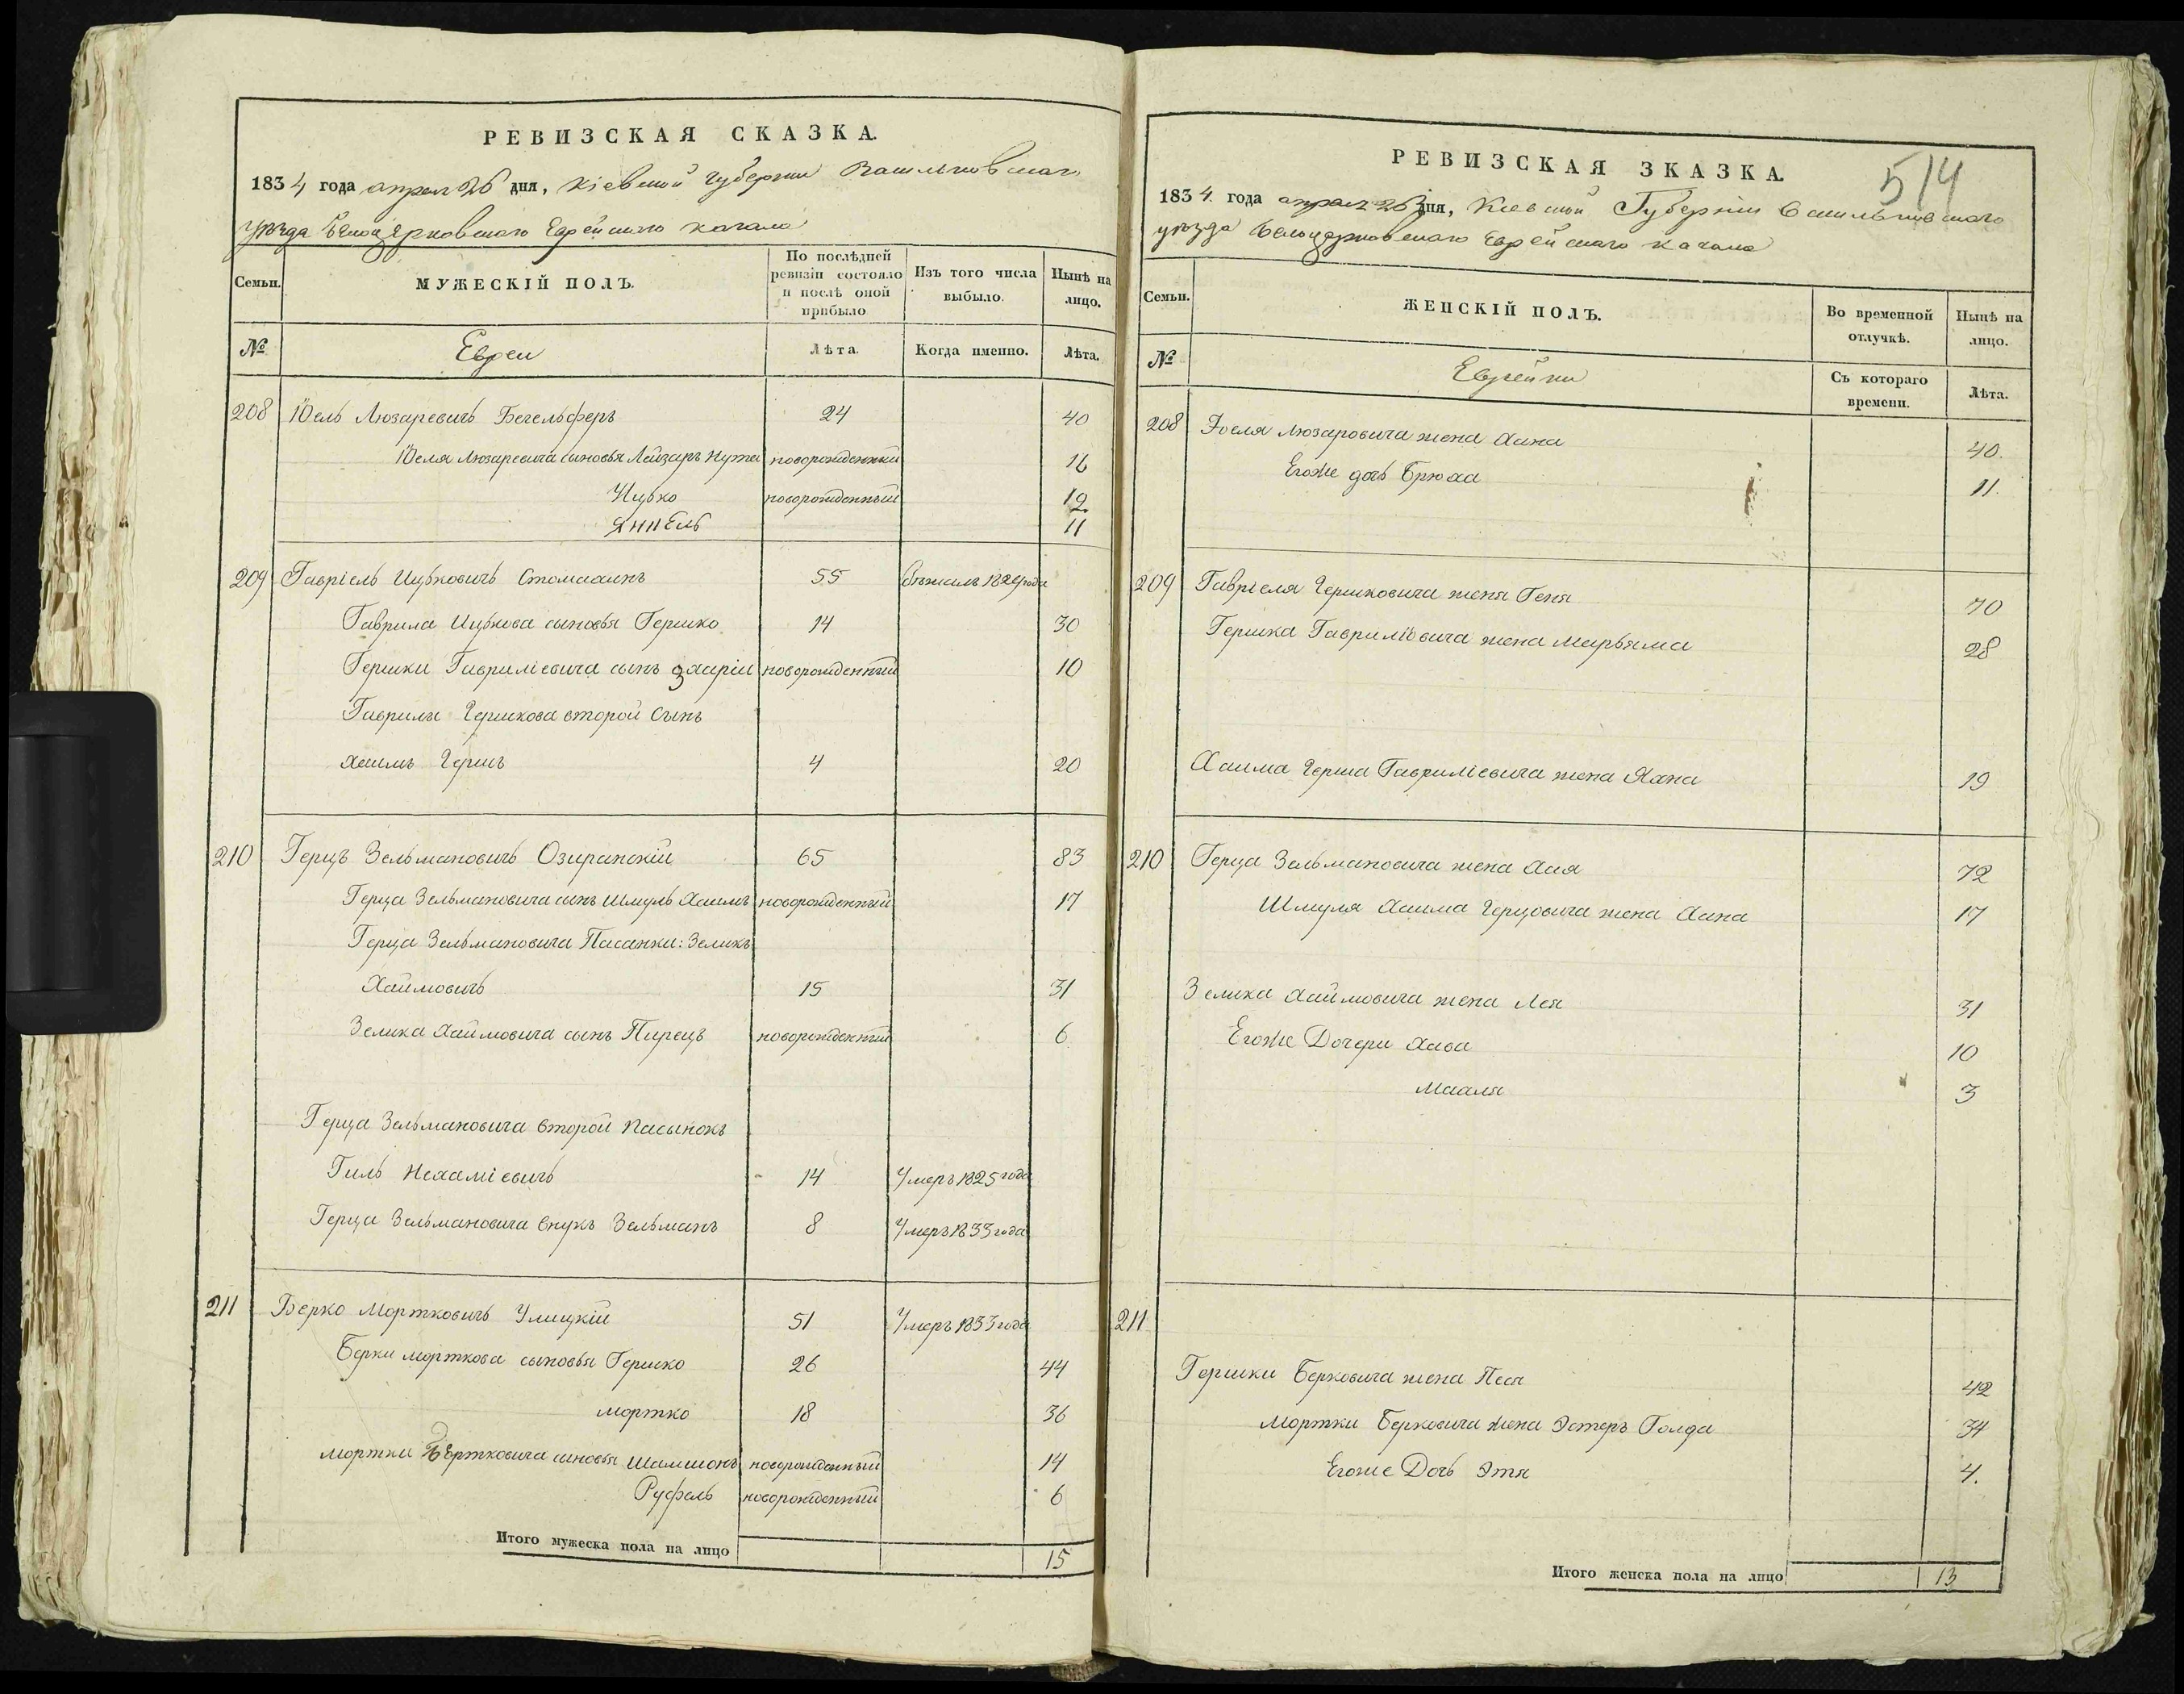 РЕВИЗСКАЯ СКАЗКА.
1834 года апрел 26 дня, Кіевской Губернии Васильковскаго
уезда Белоцерковскаго Еврейскаго кагала
Семьи.
МУЖЕСКІЙ ПОЛЪ.
По послѣдней ревизіи состояло и послѣ оной прибыло
Изъ того числа выбыло.
Нынѣ на лицо.
№
Евреи
Лѣта.
Когда именно.
Лѣта.
208 Юель Люзаревичъ Бегельферъ 24 40
Юеля Люзаревича сыновья Лейзаръ Нутя новорожденный 16
Ицько новорожденный 12
Яннель 11
209 Гавріель Ицьковичъ Стомахинъ 55 бѣжалъ 1824 года
Гаврила Ицькова сыновья Гершко 14 30
Гершки Гавриліевича сынъ Захарій новорожденный 10
Гаврилы Гершкова второй сынъ
Хаимъ Гершъ 4 20
210 Герцъ Зельмановичъ Озиранскій 65 83
Герца Зельмановича сынъ Шмуль Хаимъ новорожденный 17
Герца Зельмановича Пасанки: Зеликъ
Хаймовичъ 15 31
Зелика Хаймовича сынъ Пирецъ новорожденный 6
Герца Зельмановича второй пасынокъ
Гиль Нехаміевичъ 14 Умеръ 1825 года
Герца Зельмановича внукъ Зельманъ 8 Умеръ 1833 года
211 Берко Мортковичъ Улицкій 51 Умеръ 1833 года
Берки Морткова сыновья Гершко 26 44
Мортко 18 36
Мортки Бертковича сыновья Шамшонъ новорожденный 14
Руфель новорожденный 6
Итого мужеска пола на лицо 15
РЕВИЗСКАЯ ЗКАЗКА.
514
1834. года апрел 26 дня, Киевской Губернии Васильковскаго
уезда Белоцерковскаго Еврейскаго кагала
Семьи.
ЖЕНСКІЙ ПОЛЪ.
Во временной отлучкѣ.
Нынѣ на лицо.
№
Еврейки
Съ котораго времени.
Лѣта.
208 Юеля Люзаровича жена Хана 40.
Егоже дочь Брюха 11.
209 Гавріеля Гершковича женя Геня 70
Гершка Гавриліовича жена Мирьяма 28
Хаима Герша Гавриліевича жена Хана 19
210 Герца Зельмановича жена Хая 72
Шмуля Хаима Герцовича жена Хана 17
Зелика Хаймовича жена Лея 31
Егоже Дочери Хава 10
Махля 3
211
Гершки Берковича жена Песя 42
Мортки Берковича жена Эстеръ Голда 34
Егоже Дочь Этя 4.
Итого женска пола на лицо 13